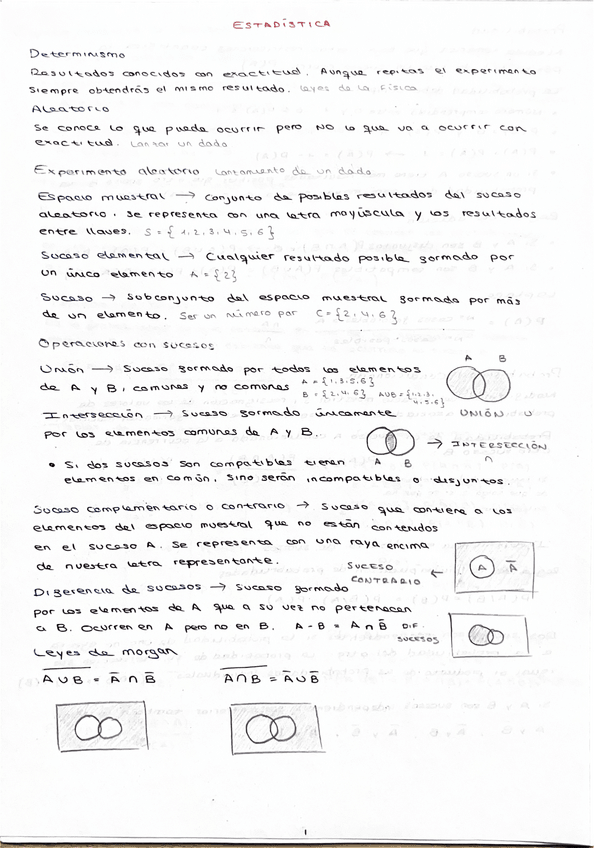 ESTADÍSTICA
Determinismo
Resultados conocidos con exactitud. Aunque repitas el experimento
siempre obtendrás el mismo resultado. Leyes de la física
Aleatorio
Se conoce lo que puede ocurrir pero NO lo que va a ocurrir con
exactitud. Lanzar un dado
Experimento aleatorio Lanzamiento de un dado
Espacio muestral → Conjunto de posibles resultados del suceso
aleatorio. Se representa con una letra mayúscula y los resultados
entre llaves. S = { 1, 2, 3, 4, 5, 6 }
Suceso elemental → Cualquier resultado posible formado por
un único elemento A = {2}
Suceso → Subconjunto del espacio muestral formado por más
de un elemento. Ser un número par C = {2, 4, 6}
Operaciones con sucesos
Unión → Suceso formado por todos los elementos
de A y B, comunes y no comunes A = {1, 3, 5, 6}
B = {2, 4, 6} AUB = {1, 2, 3, 4, 5, 6}
A B
UNIÓN U
Intersección → Suceso formado únicamente
por los elementos comunes de A y B.
A B → INTERSECCIÓN
∩
• Si dos sucesos son compatibles tienen
elementos en común, sino serán incompatibles o disjuntos.
Suceso complementario o contrario → Suceso que contiene a los
elementos del espacio muestral que no están contenidos
en el suceso A. Se representa con una raya encima
de nuestra letra representante.
SUCESO CONTRARIO ←
A A̅
Diferencia de sucesos → Suceso formado
por los elementos de A que a su vez no pertenecen
a B. Ocurren en A pero no en B. A - B = A ∩ B̅ DIF.
SUCESOS
Leyes de morgan
A̅ ̅U̅ ̅B̅ = A̅ ∩ B̅ A̅ ̅∩̅ ̅B̅ = A̅ U B̅
1